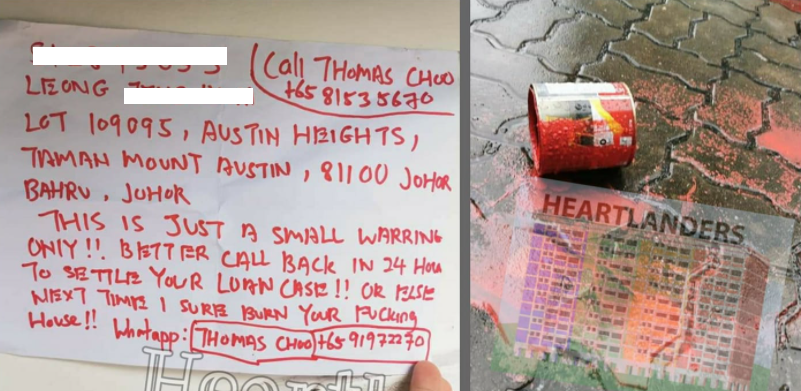 Call THOMAS CHOO
+65 81535670
LEONG
LOT 109095, AUSTIN HEIGHTS,
TAMAN MOUNT AUSTIN, 81100 JOHOR
BAHRU, JOHOR
THIS IS JUST A SMALL WARRING
ONLY!! BETTER CALL BACK IN 24 HOU
TO SETTLE YOUR LOAN CASE!! OR ELSE
NEXT TIME I SURE BURN YOUR FUCKING
HOUSE!! Whatapp: THOMAS CHOO +65 91972270
HEARTLANDERS